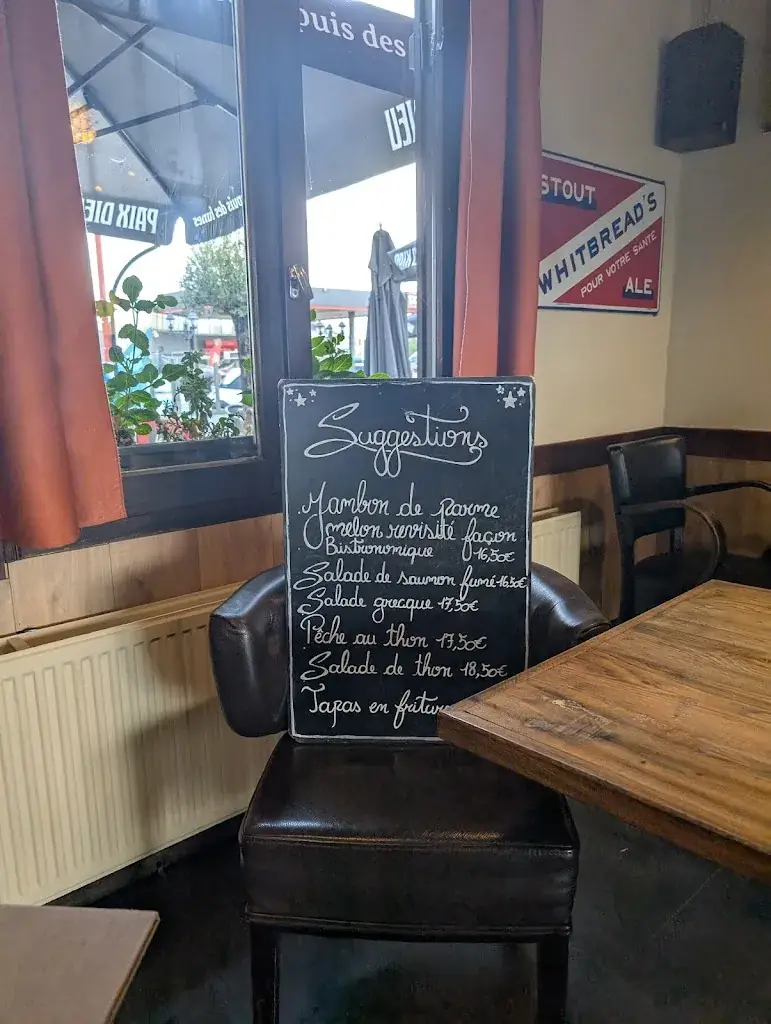 puis des
DIEU
PAIX DIEU
puis des fûmes
STOUT
WHITBREAD'S
POUR VOTRE SANTE
ALE
Suggestions
Jambon de parme
melon revisité façon
Bistronomique 16,50€
Salade de saumon fumé 16,50€
Salade grecque 17,50€
Pêche au thon 17,50€
Salade de thon 18,50€
Tapas en friture